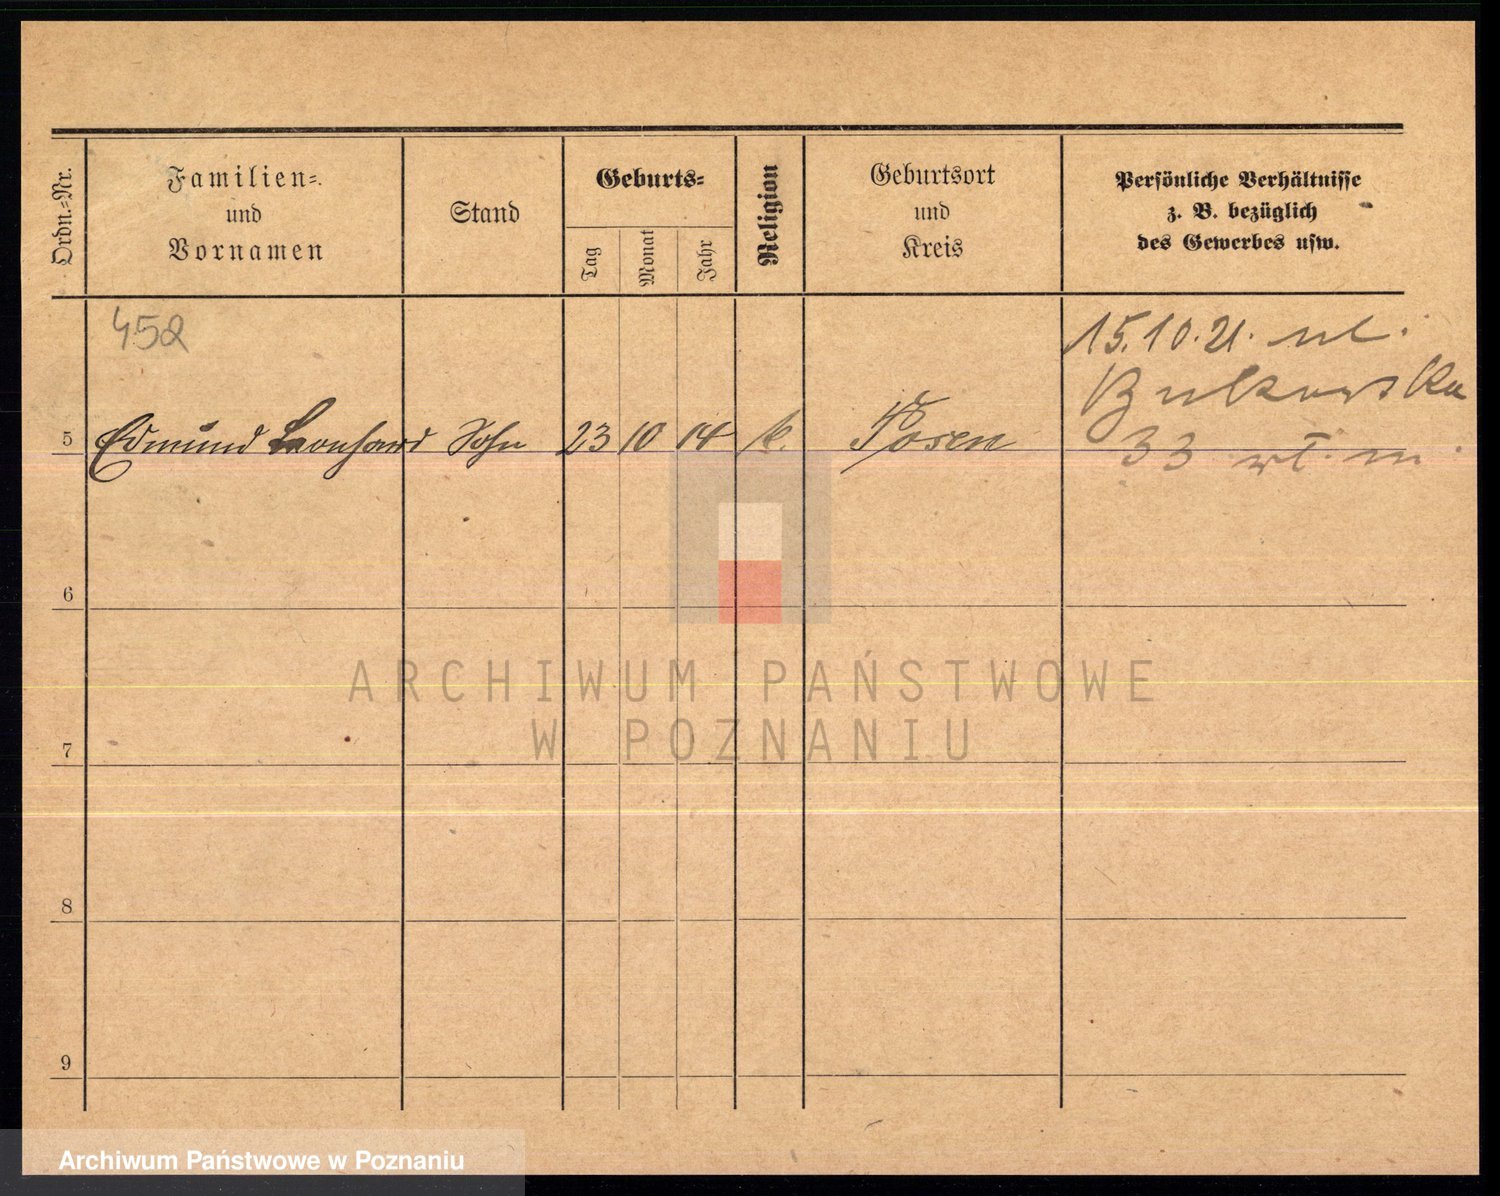 Ordn.=Nr.
Familien=
und
Vornamen
Stand
Geburts=
Tag
Monat
Jahr
Religion
Geburtsort
und
Kreis
Persönliche Verhältnisse
z. B. bezüglich
des Gewerbes usw.
452
15.10.21. ul.
Bukowska
33
5 Edmund Leonhard Sohn 23 10 14 k. Posen
6
7
8
9
ARCHIWUM PAŃSTWOWE
W POZNANIU
Archiwum Państwowe w Poznaniu